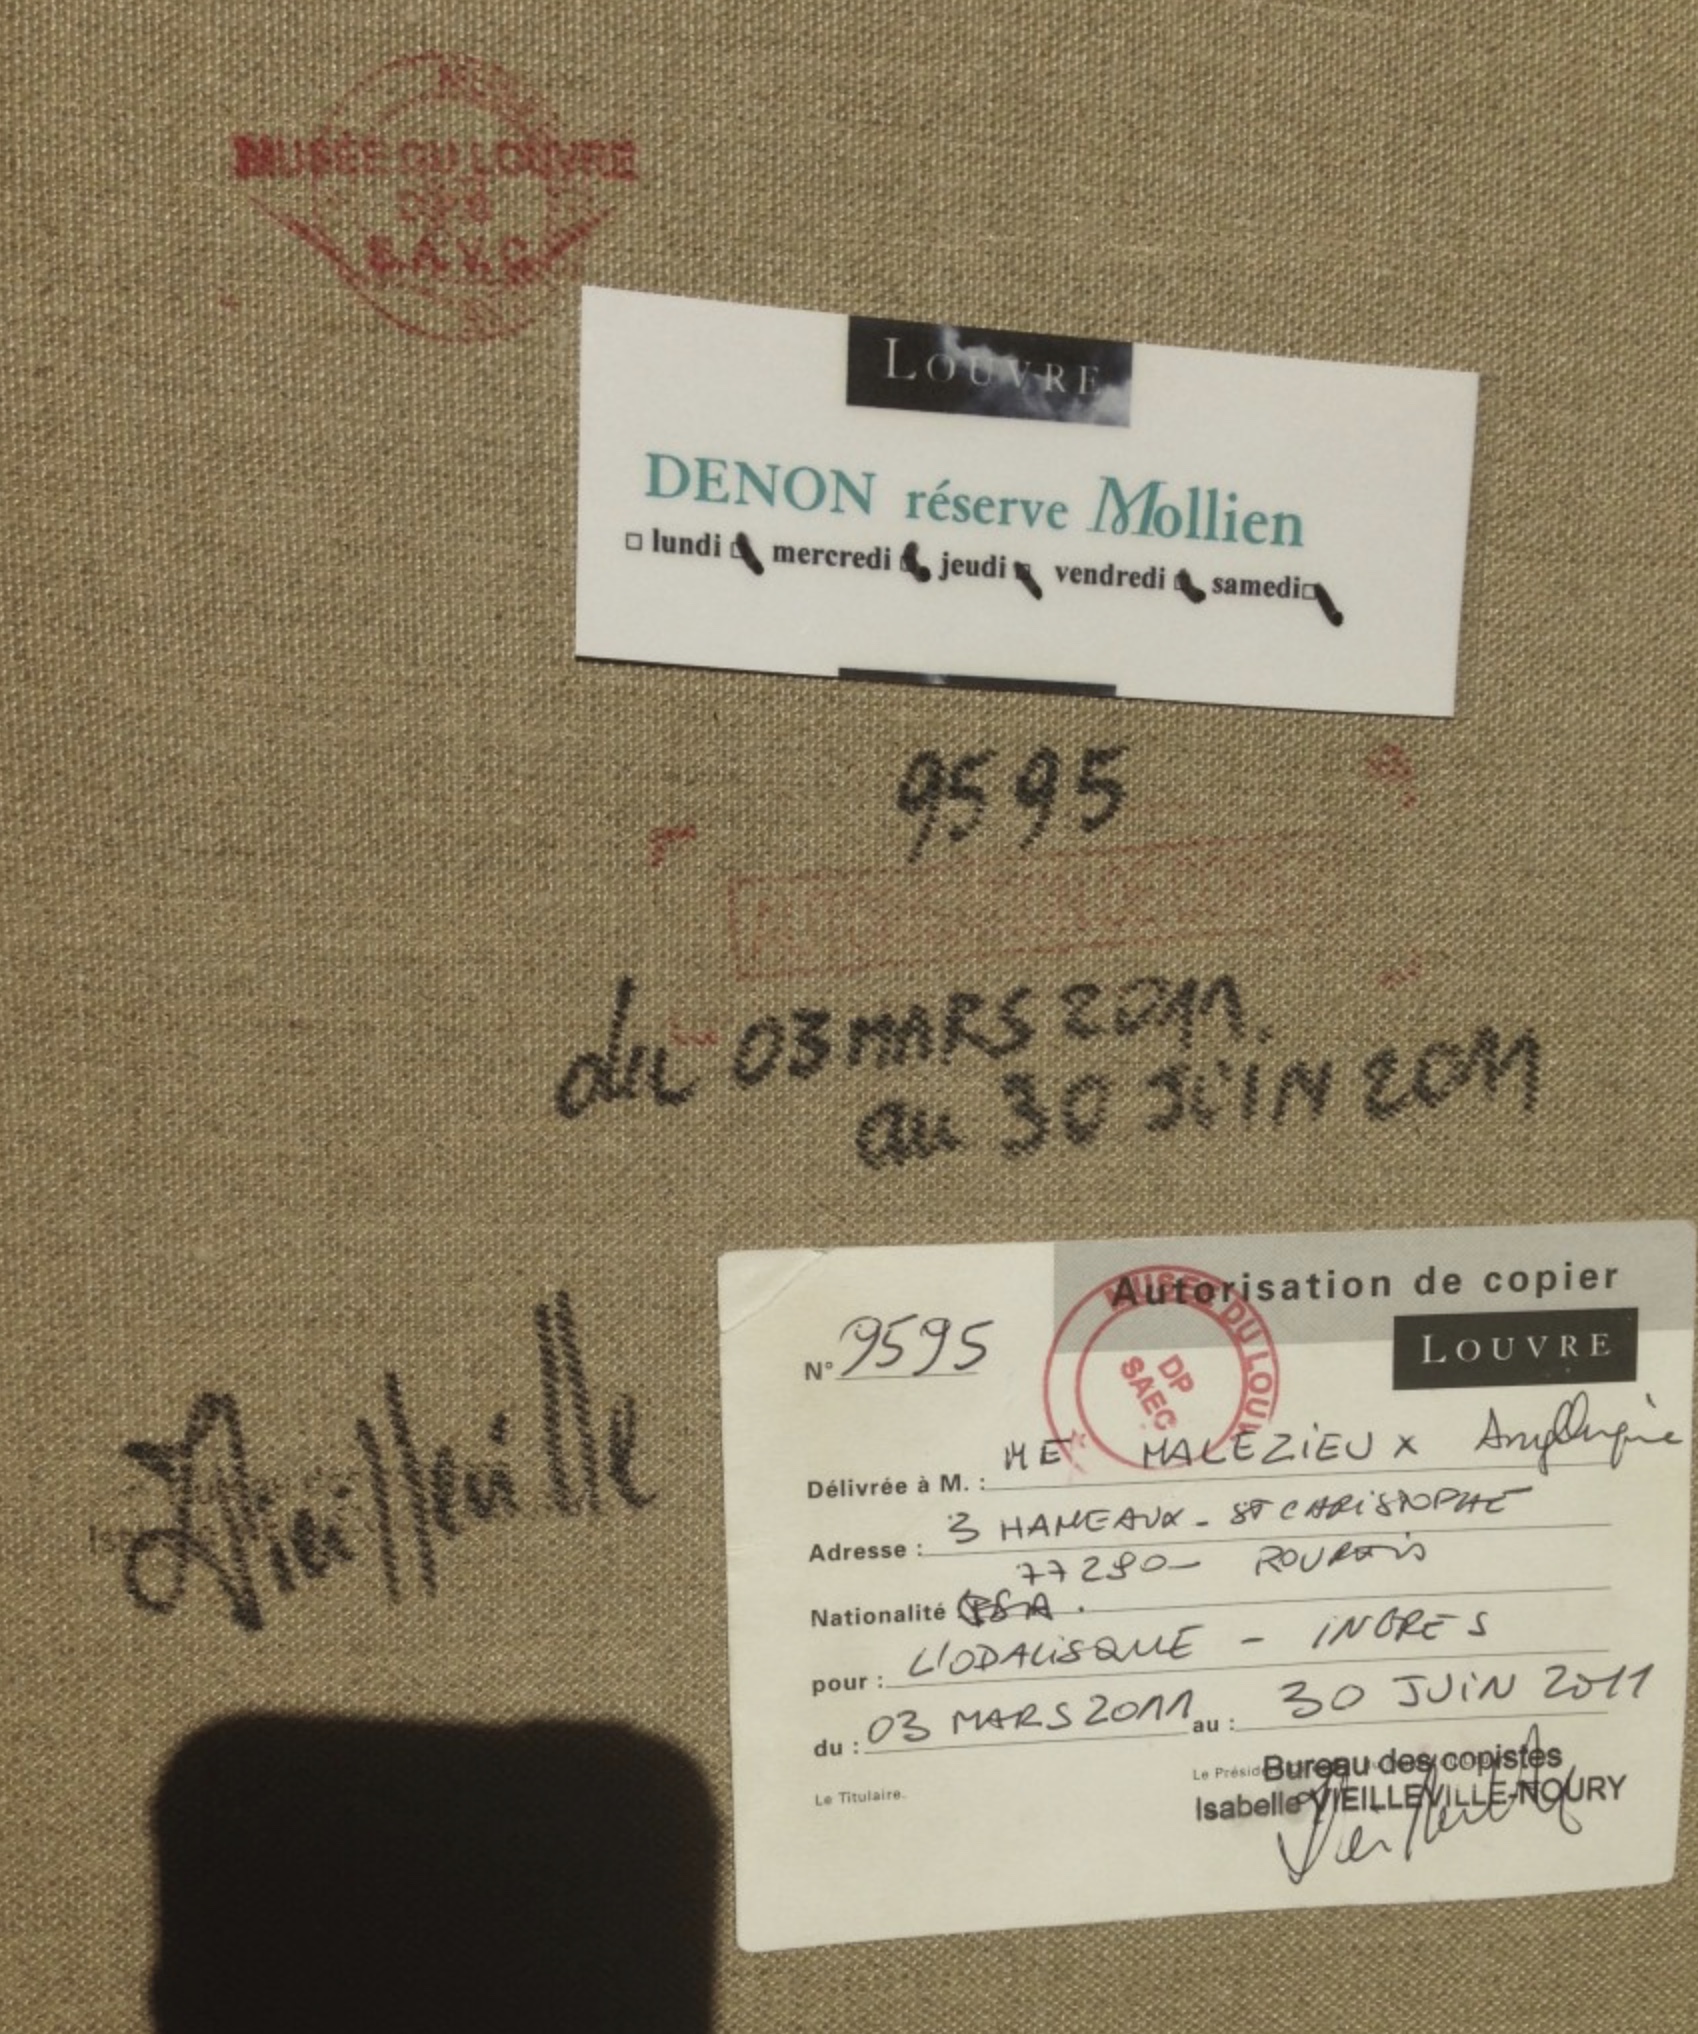 MUSÉE DU LOUVRE
S.A.V.C.
LOUVRE
DENON réserve Mollien
lundi mercredi jeudi vendredi samedi
9595
du 03 MARS 2011.
au 30 JUIN 2011
Vieilleville
Autorisation de copier
LOUVRE
N° 9595
MUSEE DU LOUV
DP
SAEC
Délivrée à M. : ME MALEZIEUX
Adresse : 3 HAMEAUX - ST CHRISTOPHE
77230 -
Nationalité
pour : L'ODALISQUE - INGRES
du : 03 MARS 2011 au : 30 JUIN 2011
Le Titulaire.
Le Présid
Bureau des copistes
Isabelle VIEILLEVILLE-NOURY